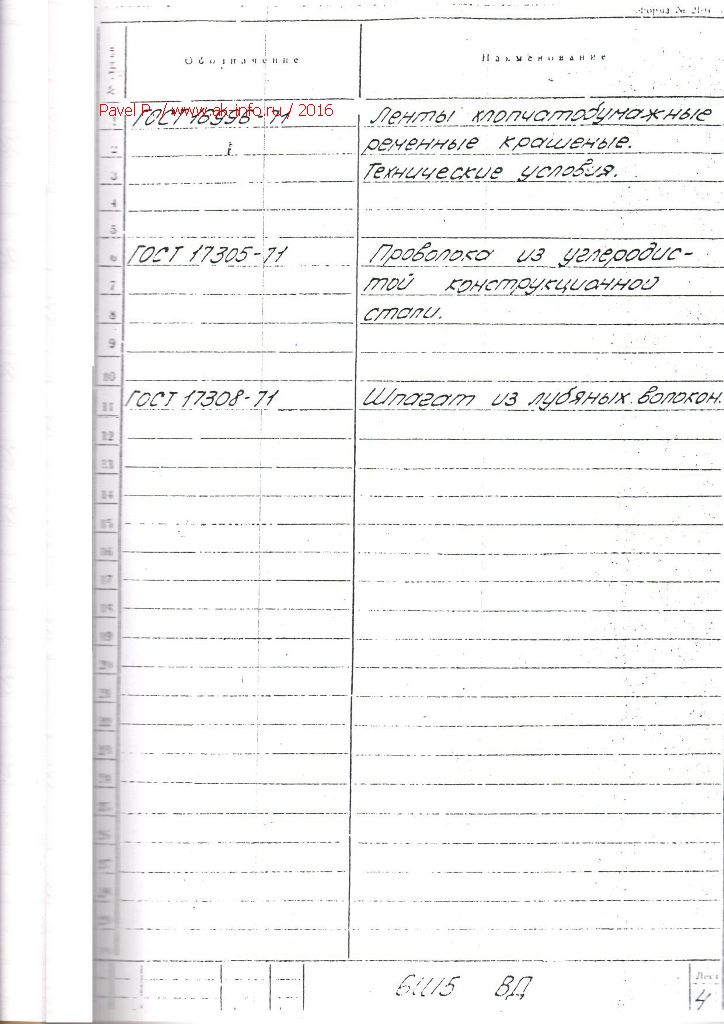 Форма №
№ строки
Обозначение
Наименование
Pavel P. / www.ak-info.ru / 2016
1 ГОСТ 16996-71 Ленты хлопчатобумажные
2 реченные крашеные.
3 Технические условия.
4
5
6 ГОСТ 17305-71 Проволока из углеродис-
7 той конструкционной
8 стали.
9
10
11 ГОСТ 17308-71 Шпагат из лубяных волокон.
12
13
14
15
16
17
18
19
20
21
22
23
24
25
26
27
28
29
6Ш15 ВД
Лист
4